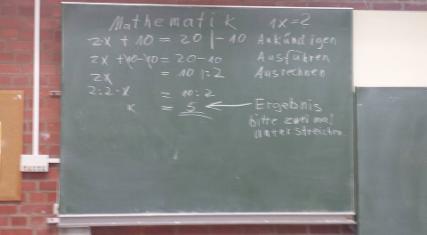 Mathematik 1x=2
2x + 10 = 20 | - 10 Ankündigen
2x + 10 - 10 = 20 - 10 Ausführen
2x = 10 |: 2 Ausrechnen
2:2·x = 10:2
x = 5 ← Ergebnis
bitte zwei mal
unterstreichen